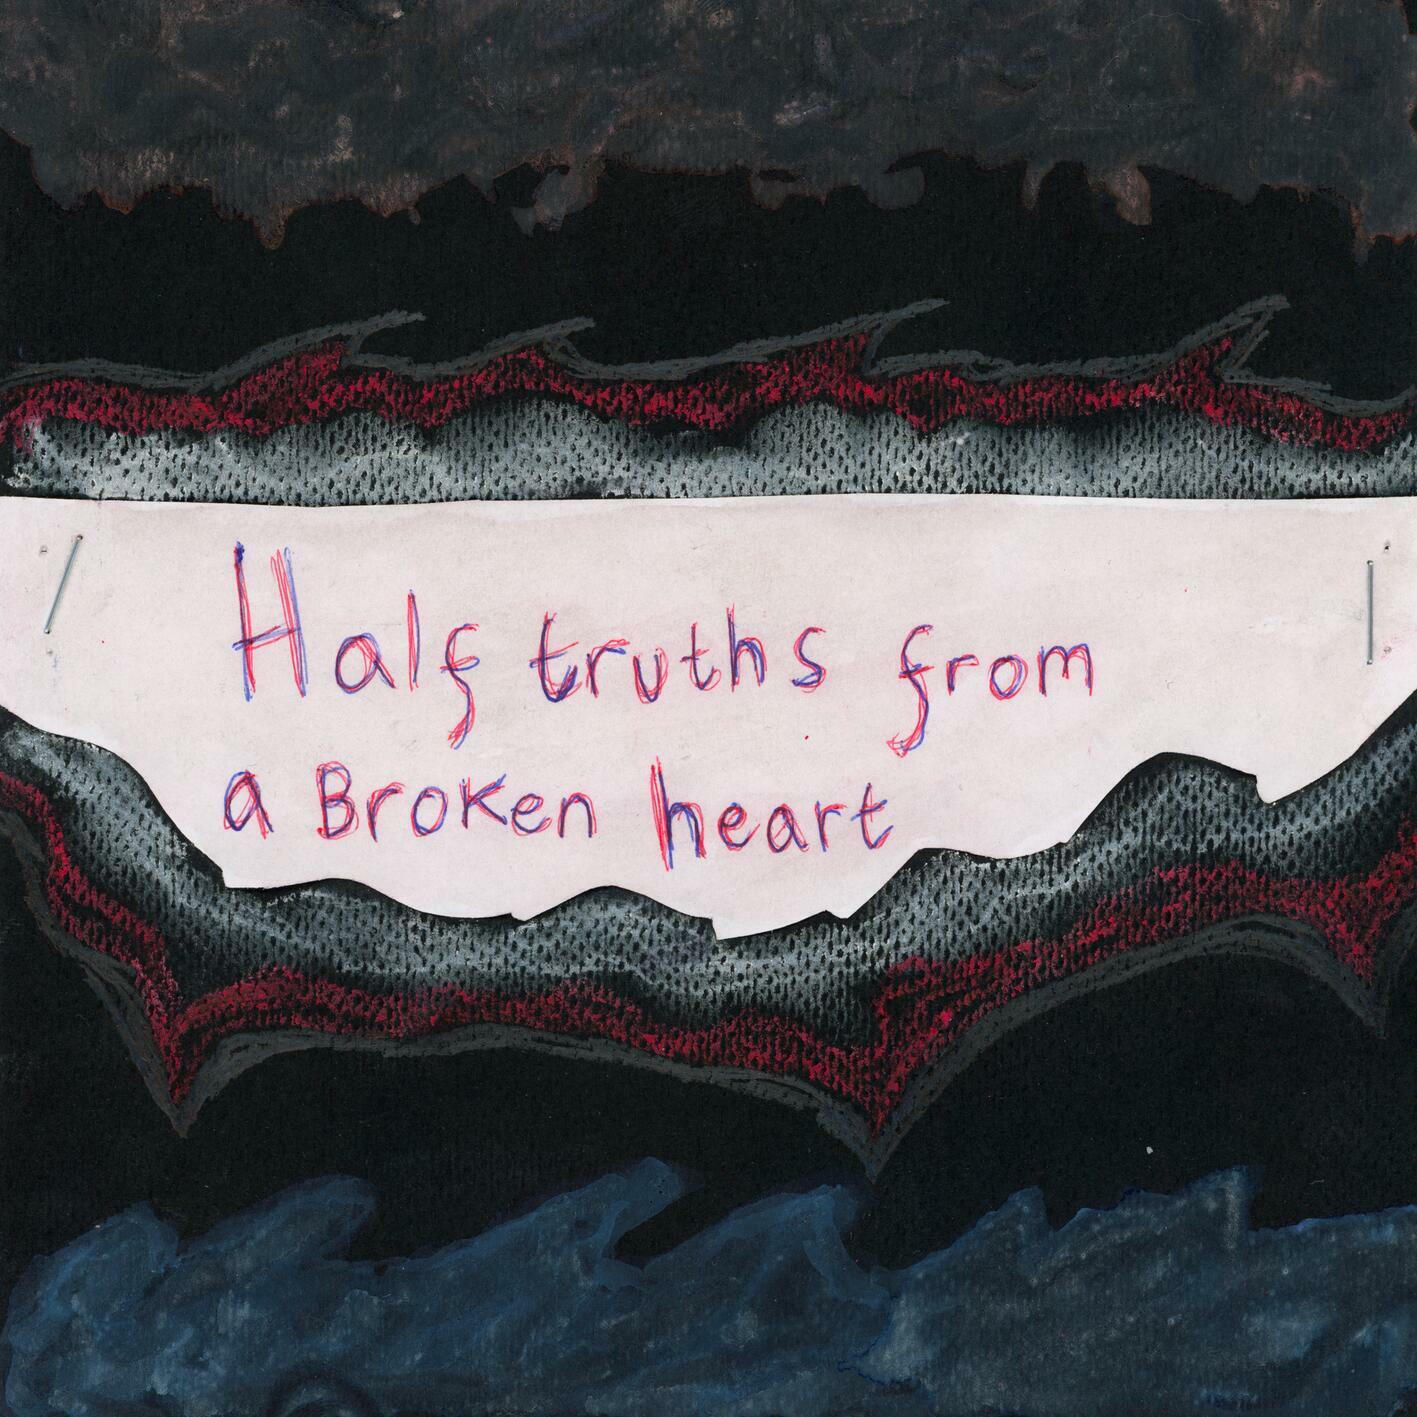 Half truths from
a Broken heart